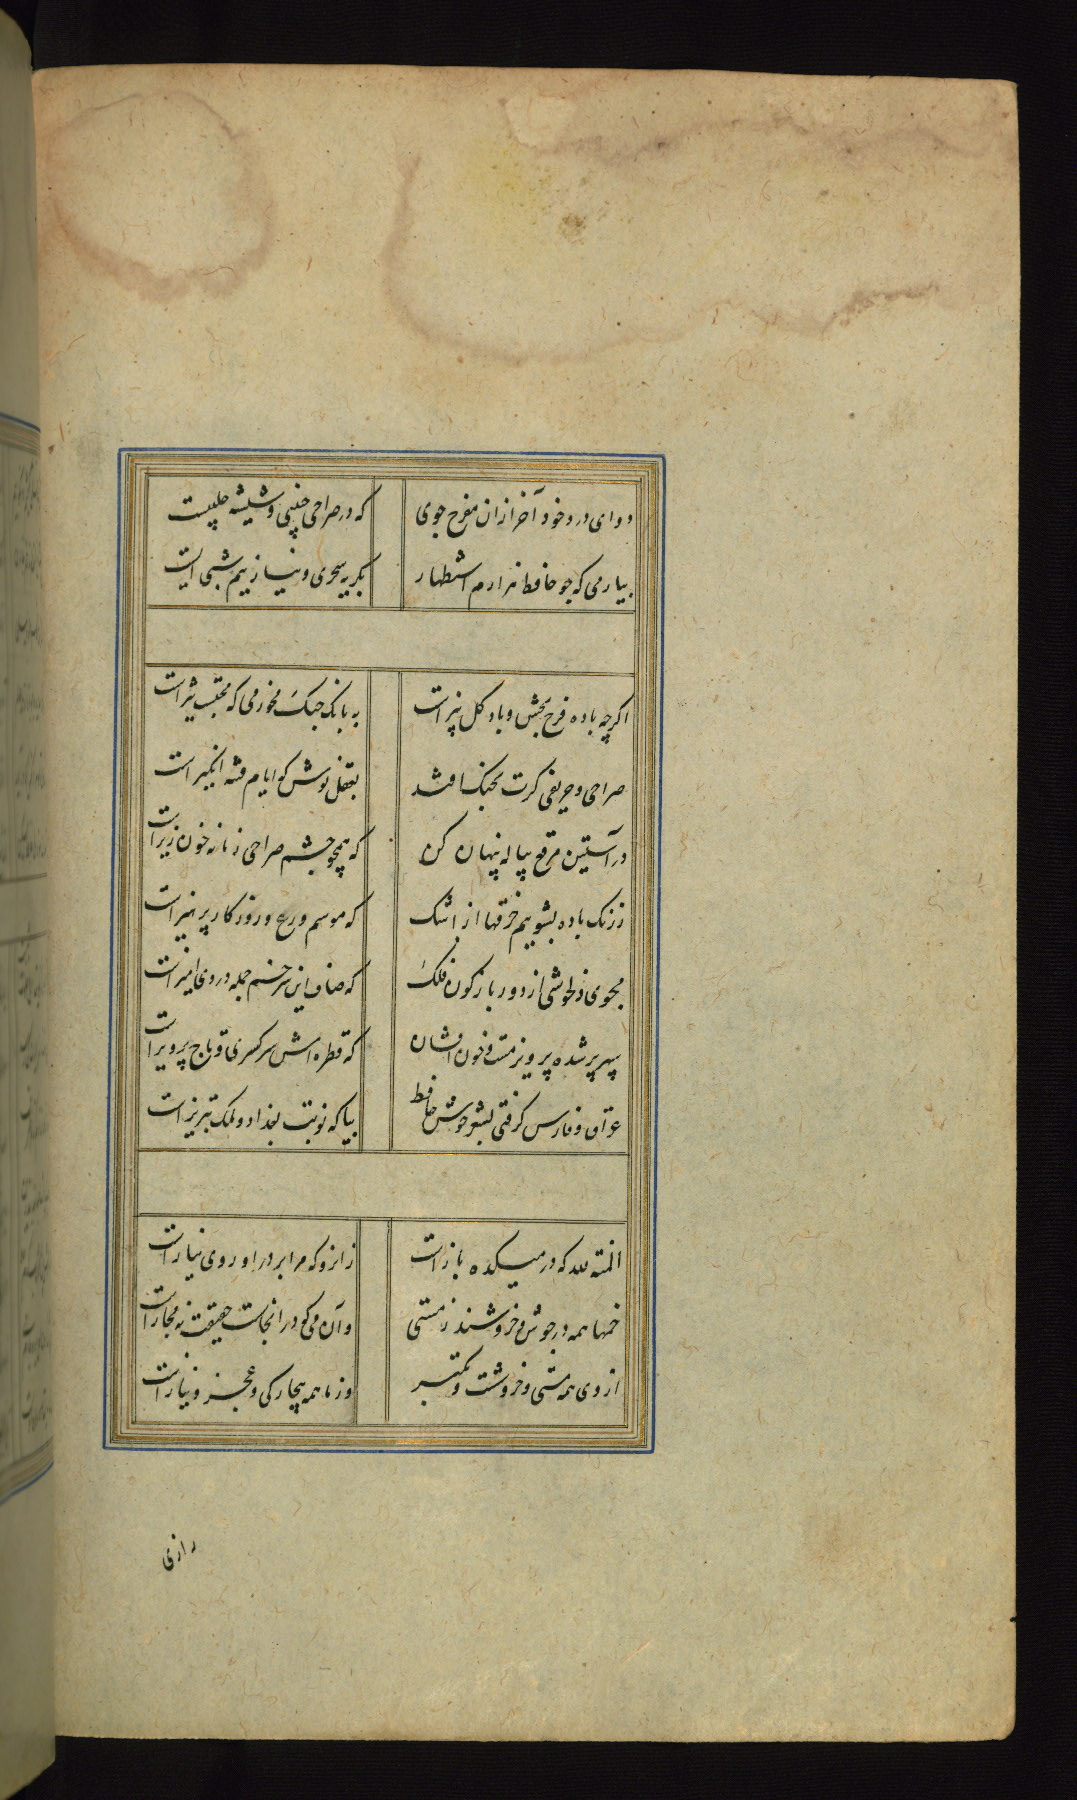 دوای درد خود آخر ازان مفرح جوی که در صراحی چینی و شیشه حلبیست
بیار می که چو حافظ هزارم استظهار بگریه سحری و نیاز نیم شبی است
اگرچه باده فرح بخش و باد کل بیز است به بانک جنک مخور می که محتسب تیز است
صراحی و حریفی کرت بجنک افتد بعقل نوش که ایام فتنه انکیز است
در آستین مرقع پیاله پنهان کن که همچو چشم صراحی زمانه خون ریز است
ز رنک باده بشوییم خرقها از اشک که موسم ورع و روزکار پرهیز است
مجوی عیش خوش از دور بازکون فلک که صاف این سر خم جمله دردی امیز است
سپهر بر شده پرویزنیست خون افشان که قطره اش سر کسری و تاج پرویز است
عراق و فارس کرفتی بشعر خوش حافظ بیا که نوبت بغداد و ملک تبریز است
المنة لله که در میکده باز است زانرو که مرا بر در او روی نیاز است
خمها همه در جوش و خروشند ز مستی وان می که در انجاست حقیقت نه مجاز است
از وی همه مستی و خروشست و تکبر وز ما همه بیچارکی و عجز و نیاز است
رازی